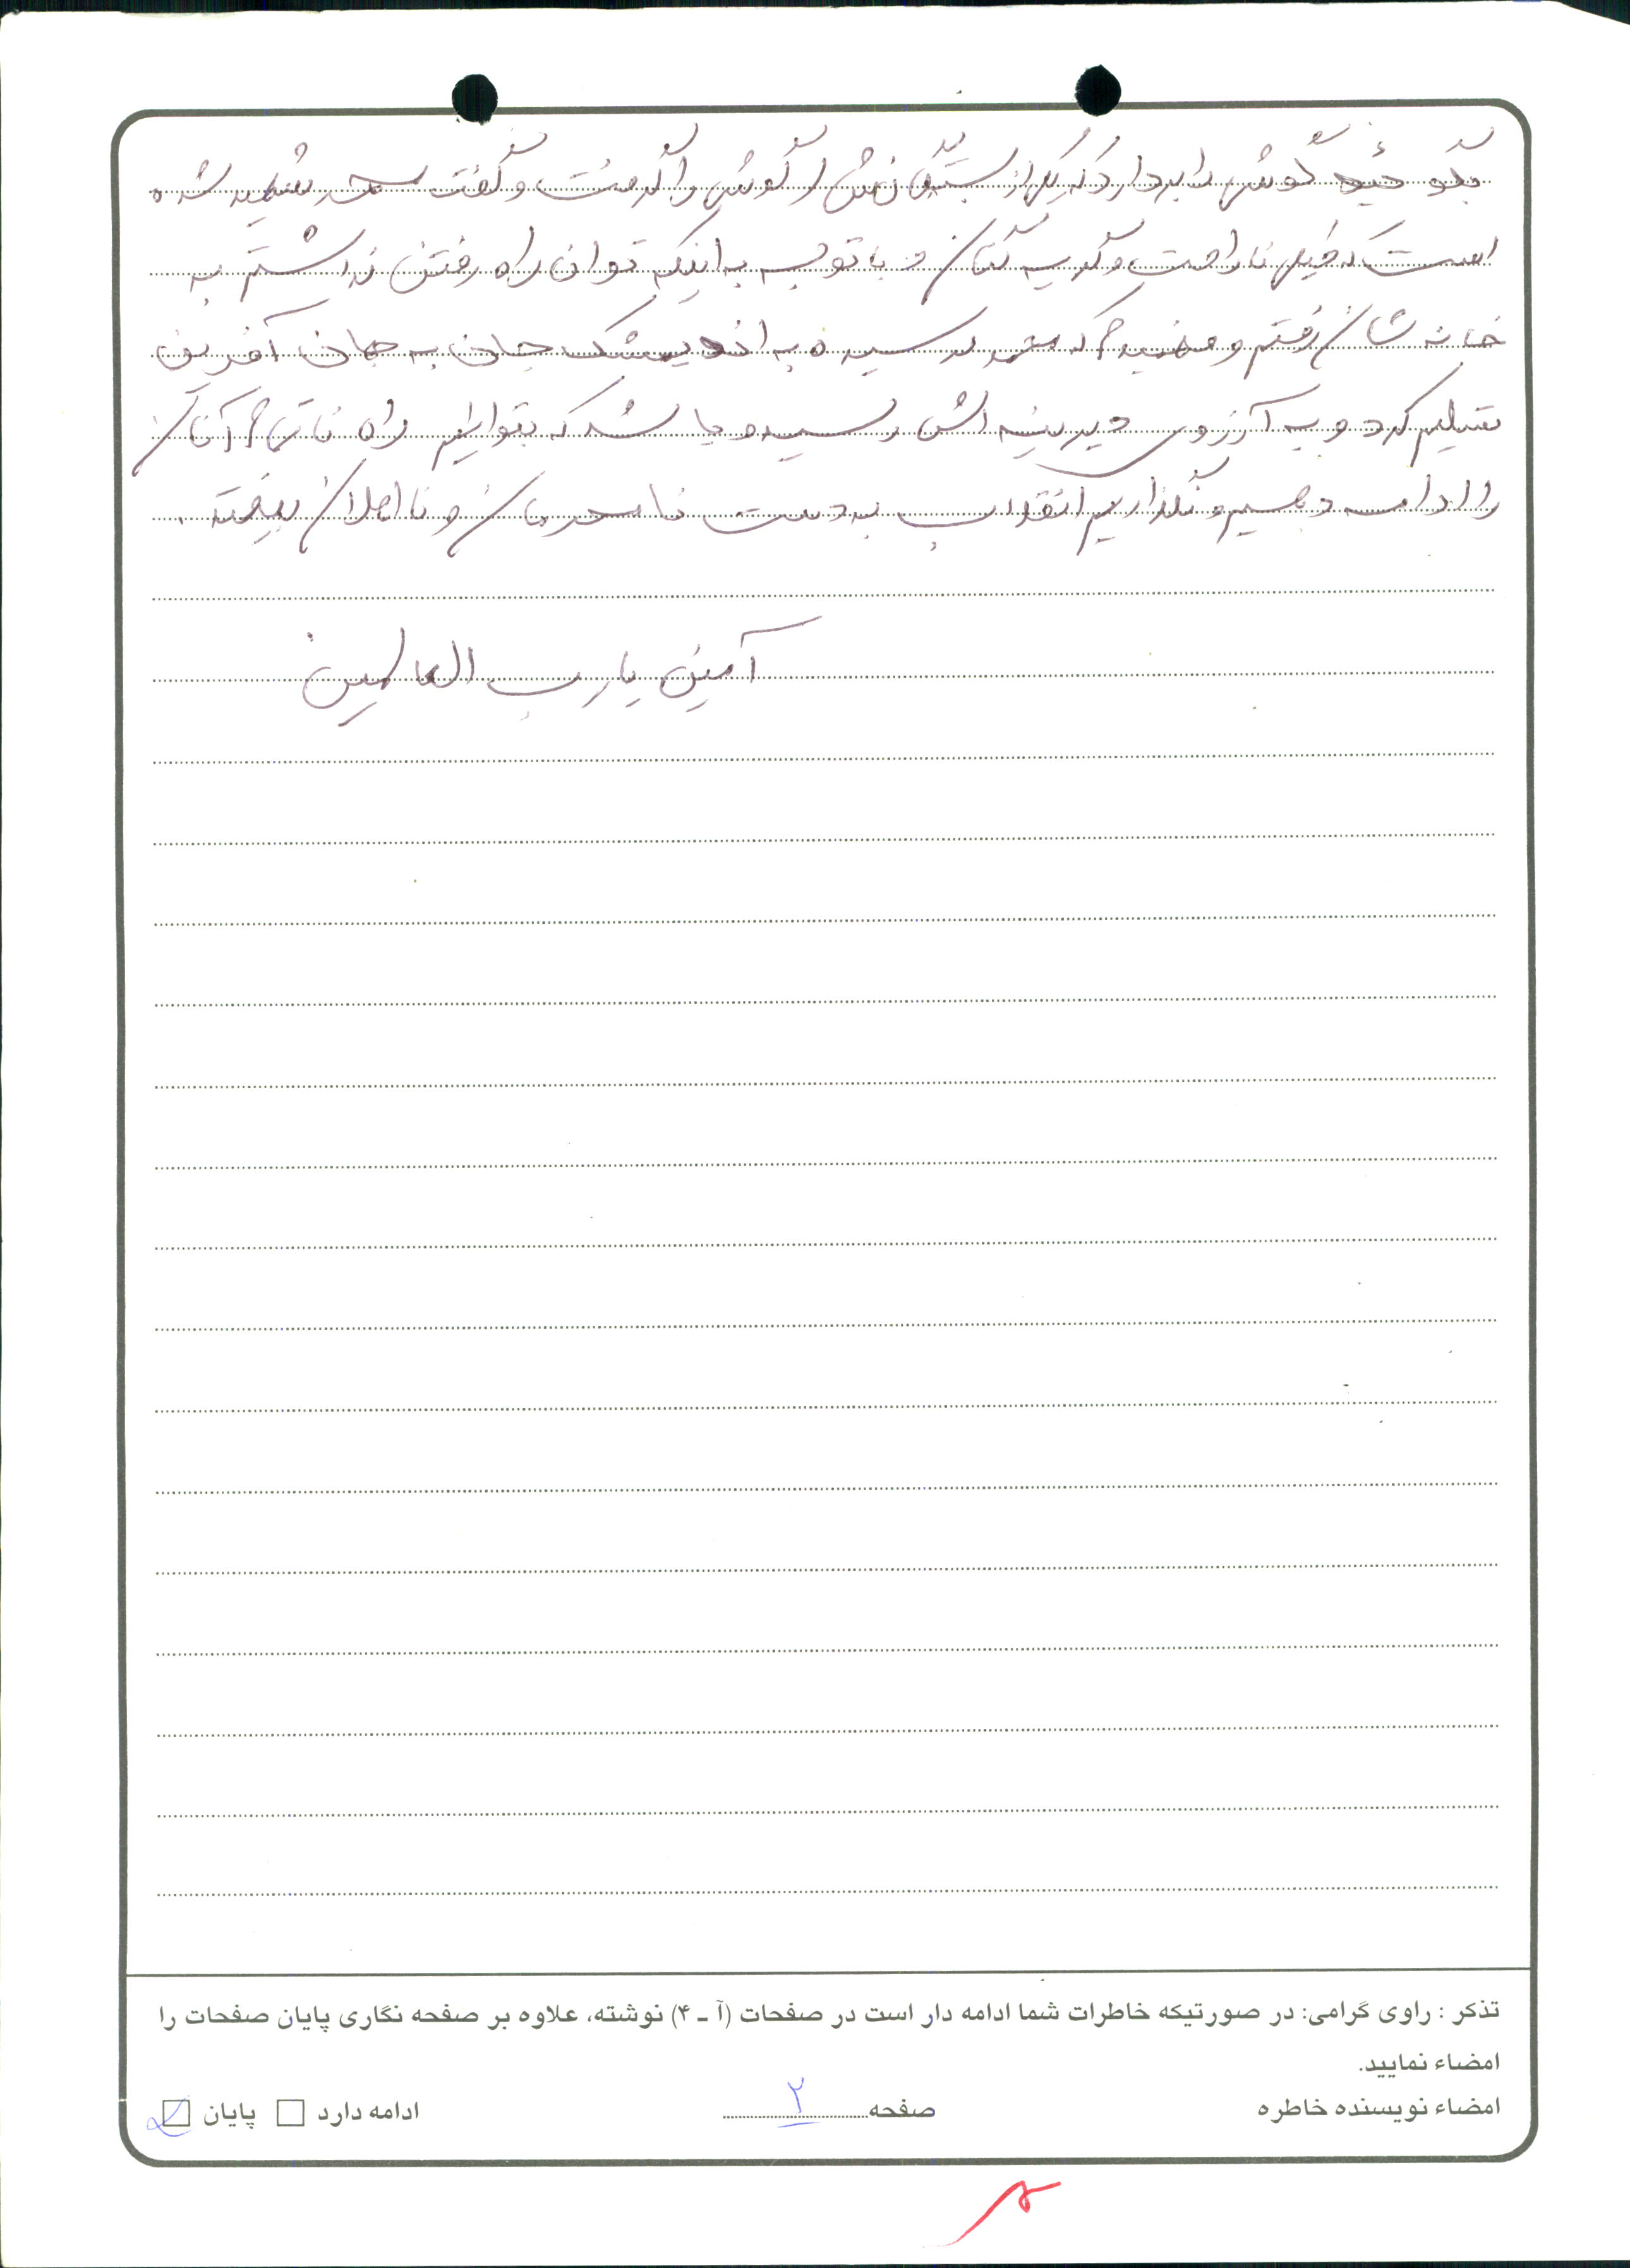 بگو گوشی را بردارد که یکی از بستگانش گوشی را گرفت و گفت محمد شهید شده
است که خیلی ناراحت و گریه کنان و با توجه به اینکه توان راه رفتن نداشتم به
خانه شان رفتم و فهمیدم که نرسیده به اندیمشک جان به جان آفرین
تسلیم کرد و به آرزوی دیرینه اش رسید و باشد که بتوانیم راه ناتمام آنان
را ادامه دهیم و نگذاریم انقلاب به دست نامحرمان و نااهلان بیفتد.
آمین یا رب العالمین
تذکر : راوی گرامی: در صورتیکه خاطرات شما ادامه دار است در صفحات (آ ـ ۴) نوشته، علاوه بر صفحه نگاری پایان صفحات را
امضاء نمایید.
امضاء نویسنده خاطره صفحه ۲ ادامه دارد پایان